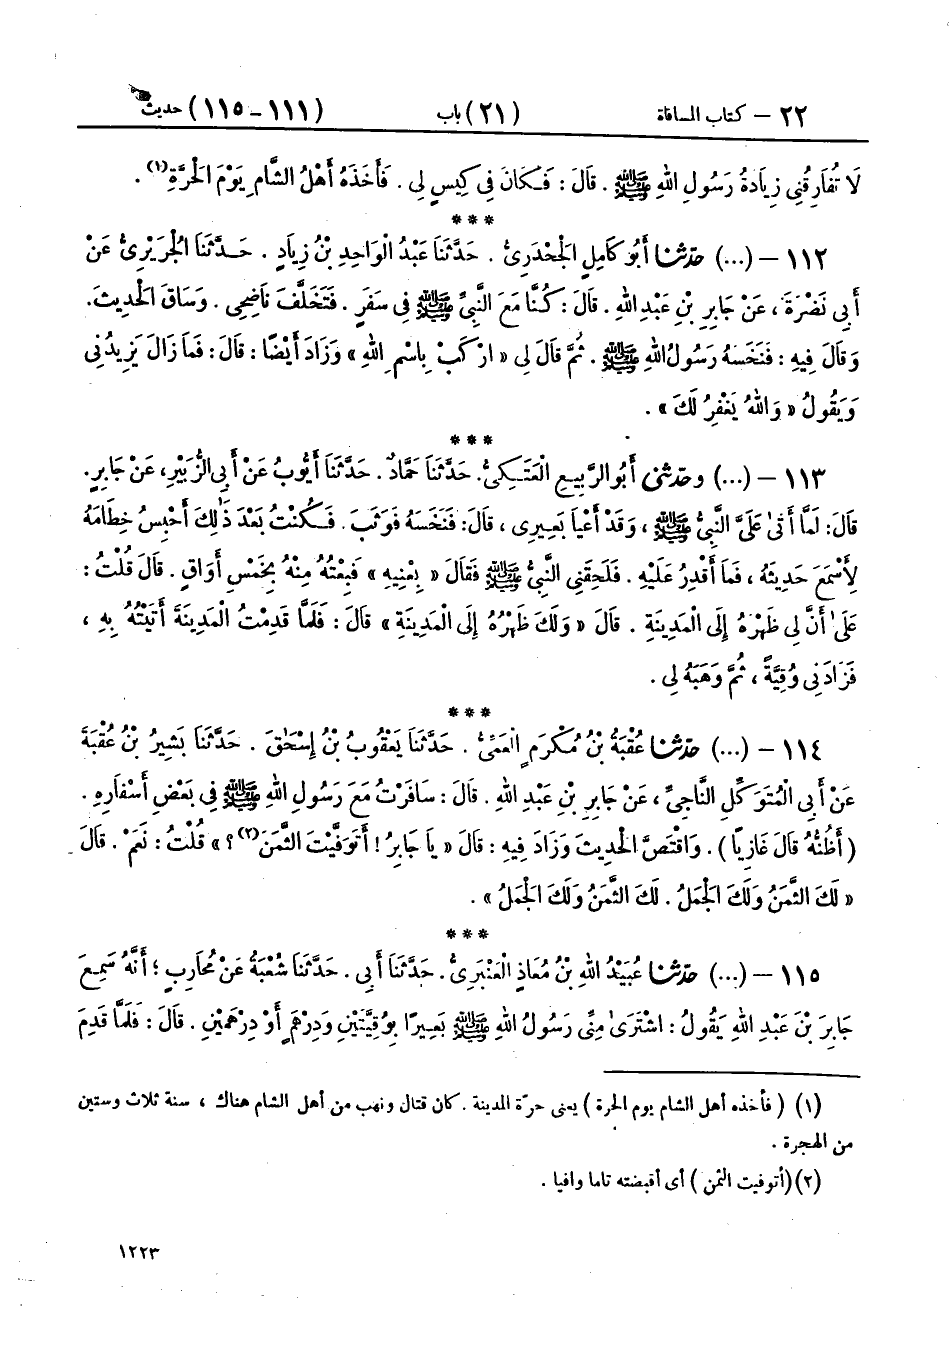 ٢٢ – كتاب المساقاة (٢١) باب (١١١ – ١١٥) حديث
لَا تُفَارِقُنِى زِيَادَةُ رَسُولِ اللهِ ﷺ . قَالَ : فَكَانَ فِى كِيسٍ لِى . فَأَخَذَهُ أَهْلُ الشَّامِ يَوْمَ الْحَرَّةِ(١) .
***
١١٢ – (...) حَدَّثَنَا أَبُو كَامِلٍ الْجَحْدَرِىُّ . حَدَّثَنَا عَبْدُ الْوَاحِدِ بْنُ زِيَادٍ . حَدَّثَنَا الْجُرَيْرِىُّ عَنْ
أَبِى نَضْرَةَ ، عَنْ جَابِرِ بْنِ عَبْدِ اللهِ . قَالَ : كُنَّا مَعَ النَّبِىِّ ﷺ فِى سَفَرٍ . فَتَخَلَّفَ نَاضِحِى . وَسَاقَ الْحَدِيثَ.
وَقَالَ فِيهِ : فَنَخَسَهُ رَسُولُ اللهِ ﷺ . ثُمَّ قَالَ لِى « ارْكَبْ بِاسْمِ اللهِ » وَزَادَ أَيْضًا : قَالَ : فَمَا زَالَ يَزِيدُنِى
وَيَقُولُ « وَاللهُ يَغْفِرُ لَكَ » .
***
١١٣ – (...) وحَدَّثَنِى أَبُو الرَّبِيعِ الْعَتَكِىُّ. حَدَّثَنَا حَمَّادٌ . حَدَّثَنَا أَيُّوبُ عَنْ أَبِى الزُّبَيْرِ، عَنْ جَابِرٍ.
قَالَ : لَمَّا أَتَى عَلَىَّ النَّبِىُّ ﷺ ، وَقَدْ أَعْيَا بَعِيرِى ، قَالَ: فَنَخَسَهُ فَوَثَبَ . فَكُنْتُ بَعْدَ ذَٰلِكَ أَحْبِسُ خِطَامَهُ
لِأَسْمَعَ حَدِيثَهُ ، فَمَا أَقْدِرُ عَلَيْهِ . فَلَحِقَنِى النَّبِىُّ ﷺ فَقَالَ « بِعْنِيهِ » فَبِعْتُهُ مِنْهُ بِخَمْسِ أَوَاقٍ . قَالَ قُلْتُ :
عَلَىٰ أَنَّ لِى ظَهْرَهُ إِلَى الْمَدِينَةِ . قَالَ « وَلَكَ ظَهْرُهُ إِلَى الْمَدِينَةِ » قَالَ : فَلَمَّا قَدِمْتُ الْمَدِينَةَ أَتَيْتُهُ بِهِ ،
فَزَادَنِى وُقِيَّةً ، ثُمَّ وَهَبَهُ لِى .
***
١١٤ – (...) حَدَّثَنَا عُقْبَةُ بْنُ مُكْرَمٍ الْعَمِّىُّ . حَدَّثَنَا يَعْقُوبُ بْنُ إِسْحَٰقَ . حَدَّثَنَا بَشِيرُ بْنُ عُقْبَةَ
عَنْ أَبِى الْمُتَوَكِّلِ النَّاجِىِّ ، عَنْ جَابِرِ بْنِ عَبْدِ اللهِ . قَالَ : سَافَرْتُ مَعَ رَسُولِ اللهِ ﷺ فِى بَعْضِ أَسْفَارِهِ .
( أَظُنُّهُ قَالَ غَازِيًا ) . وَاقْتَصَّ الْحَدِيثَ وَزَادَ فِيهِ : قَالَ « يَا جَابِرُ ! أَتَوَفَّيْتَ الثَّمَنَ(٢) ؟ » قُلْتُ : نَعَمْ . قَالَ
« لَكَ الثَّمَنُ وَلَكَ الْجَمَلُ . لَكَ الثَّمَنُ وَلَكَ الْجَمَلُ » .
***
١١٥ – (...) حَدَّثَنَا عُبَيْدُ اللهِ بْنُ مُعَاذٍ الْعَنْبَرِىُّ . حَدَّثَنَا أَبِى . حَدَّثَنَا شُعْبَةُ عَنْ مُحَارِبٍ ؛ أَنَّهُ سَمِعَ
جَابِرَ بْنَ عَبْدِ اللهِ يَقُولُ : اشْتَرَىٰ مِنِّى رَسُولُ اللهِ ﷺ بَعِيرًا بِوُقِيَّتَيْنِ وَدِرْهَمٍ أَوْ دِرْهَمَيْنِ . قَالَ : فَلَمَّا قَدِمَ
(١) ( فأخذه أهل الشام يوم الحرة ) يعنى حرّة المدينة . كان قتال ونهب من أهل الشام هناك ، سنة ثلاث وستين
من الهجرة .
(٢) (أتوفيت الثمن ) أى أقبضته تاما وافيا .
١٢٢٣